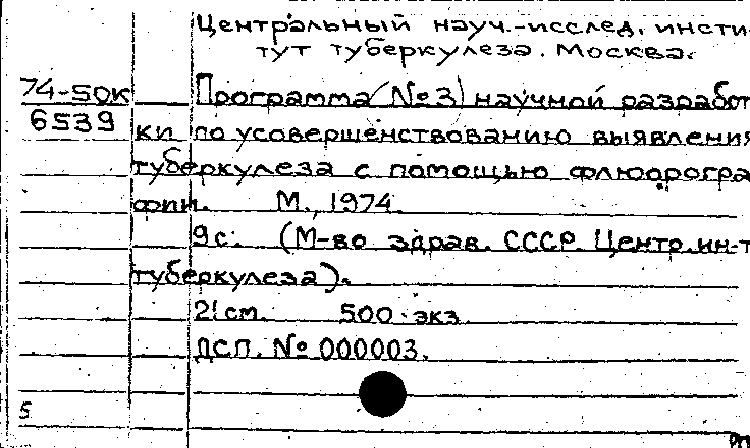 Центральный науч.-исслед. инсти-
тут туберкулеза. Москва.
74-50К
6539
Программа (№3) научной разработ
ки по усовершенствованию выявления
туберкулеза с помощью флюорогра
фии. М., 1974.
9с. (М-во здрав. СССР. Центр. ин-т
туберкулеза).
21см. 500 экз.
ДСП. № 000003.
5